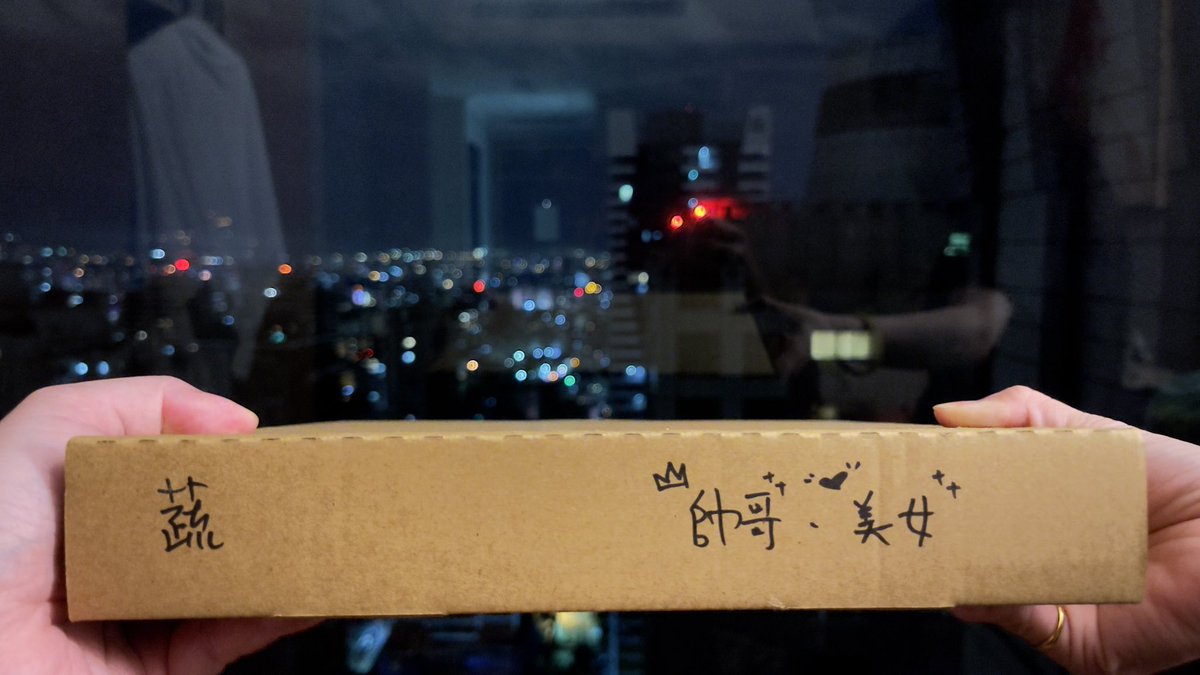 蔬
帥哥、美女